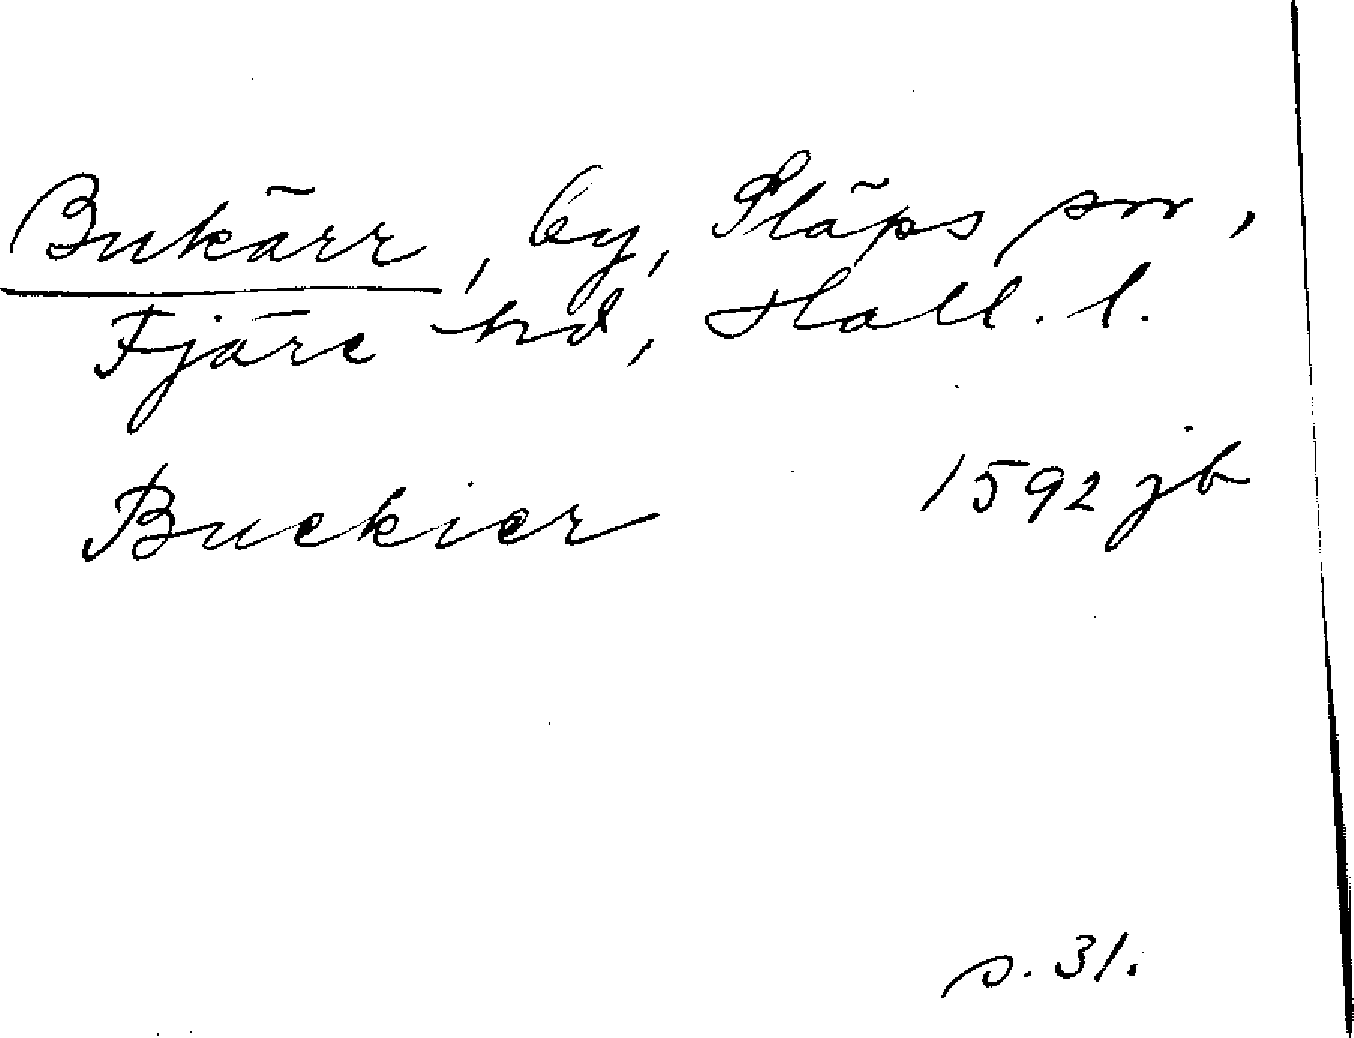 Bukärr, by, Släps sn,
Fjäre hd, Hall. l.
Buckier 1592 jb
s. 31.